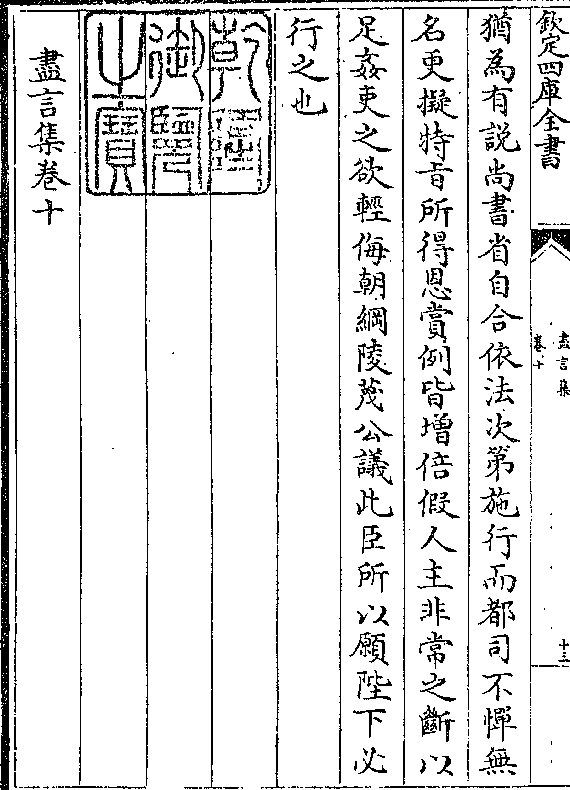 欽定四庫全書
盡言集
卷十
十三
猶為有説尚書省自合依法次第施行而都司不憚無
名更擬特旨所得恩賞例皆增倍假人主非常之斷以
足姦吏之欲輕侮朝綱陵蔑公議此臣所以願陛下必
行之也
乾隆
御覽
之寶
盡言集卷十